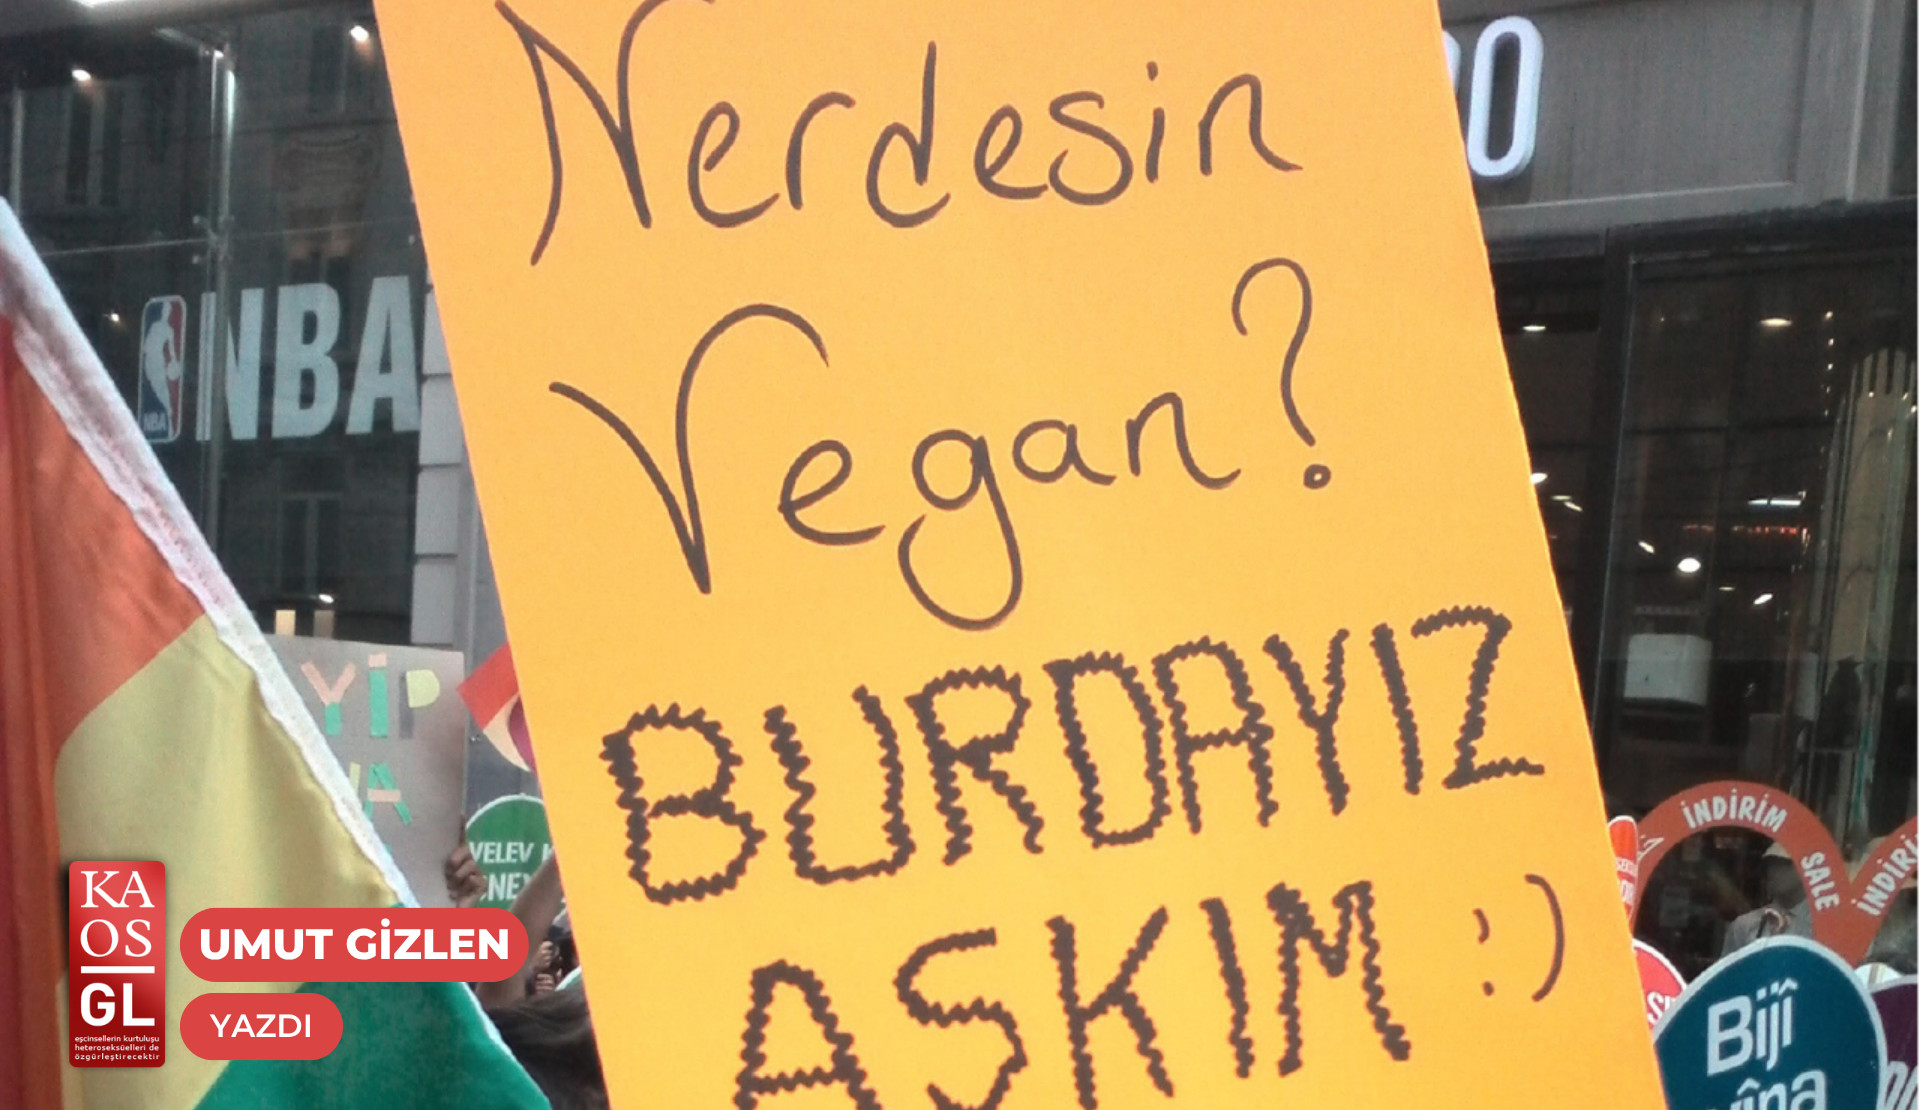 Nerdesin
Vegan?
BURDAYIZ
AŞKIM :)
NBA
NBA
YİP
VELEV
İNDİRİM
SALE
Bijî
KA
OS
GL
eşcinsellerin kurtuluşu
heteroseksüelleri de
özgürleştirecektir
UMUT GİZLEN
YAZDI